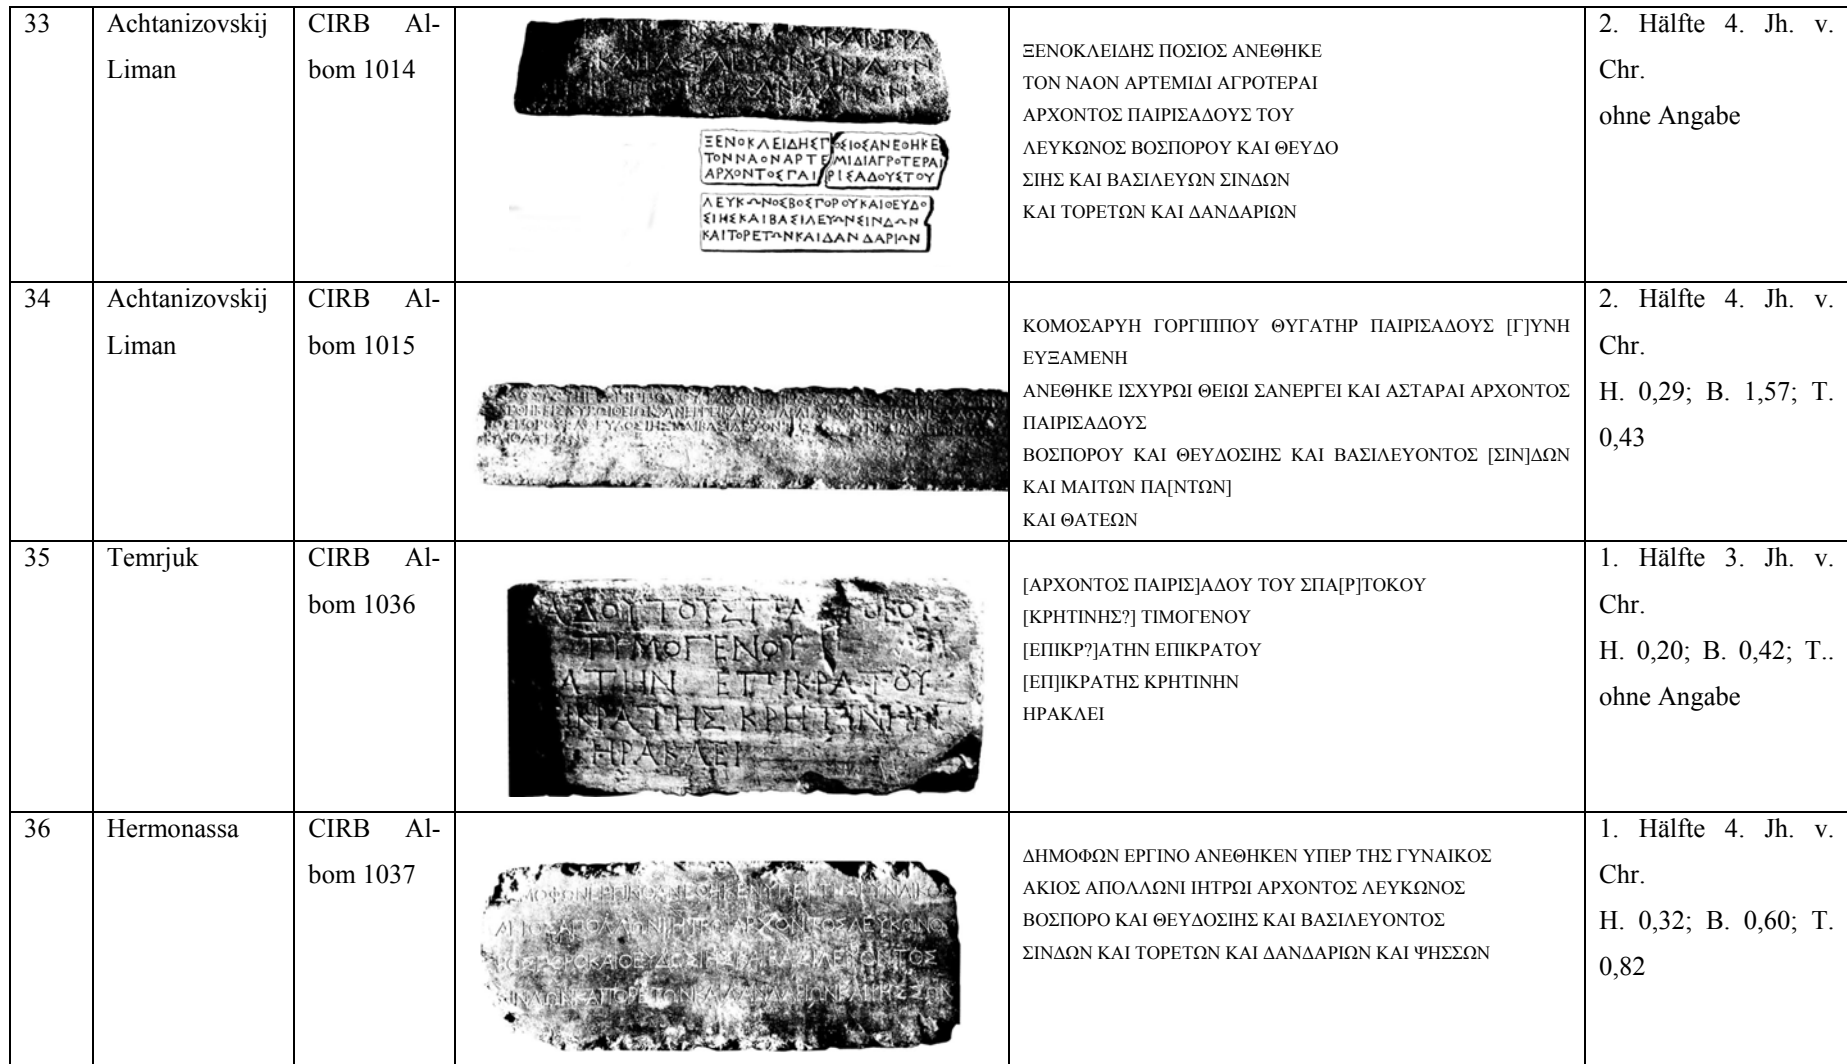 33
Achtanizovskij
Liman
CIRB Al-
bom 1014
ΞΕΝΟΚΛΕΙΔΗΣΠΟΣΙΟΣΑΝΕΘΗΚΕ
ΤΟΝΝΑΟΝΑΡΤΕΜΙΔΙΑΓΡΟΤΕΡΑΙ
ΑΡΧΟΝΤΟΣΠΑΙΡΙΣΑΔΟΥΣΤΟΥ
ΛΕΥΚΩΝΟΣΒΟΣΠΟΡΟΥΚΑΙΘΕΥΔΟ
ΣΙΗΣΚΑΙΒΑΣΙΛΕΥΩΝΣΙΝΔΩΝ
ΚΑΙΤΟΡΕΤΩΝΚΑΙΔΑΝΔΑΡΙΩΝ
ΞΕΝΟΚΛΕΙΔΗΣ ΠΟΣΙΟΣ ΑΝΕΘΗΚΕ
ΤΟΝ ΝΑΟΝ ΑΡΤΕΜΙΔΙ ΑΓΡΟΤΕΡΑΙ
ΑΡΧΟΝΤΟΣ ΠΑΙΡΙΣΑΔΟΥΣ ΤΟΥ
ΛΕΥΚΩΝΟΣ ΒΟΣΠΟΡΟΥ ΚΑΙ ΘΕΥΔΟ
ΣΙΗΣ ΚΑΙ ΒΑΣΙΛΕΥΩΝ ΣΙΝΔΩΝ
ΚΑΙ ΤΟΡΕΤΩΝ ΚΑΙ ΔΑΝΔΑΡΙΩΝ
2. Hälfte 4. Jh. v.
Chr.
ohne Angabe
34
Achtanizovskij
Liman
CIRB Al-
bom 1015
ΚΟΜΟΣΑΡΥΗ ΓΟΡΓΙΠΠΟΥ ΘΥΓΑΤΗΡ ΠΑΙΡΙΣΑΔΟΥΣ [Γ]ΥΝΗ
ΕΥΞΑΜΕΝΗ
ΑΝΕΘΗΚΕ ΙΣΧΥΡΩΙ ΘΕΙΩΙ ΣΑΝΕΡΓΕΙ ΚΑΙ ΑΣΤΑΡΑΙ ΑΡΧΟΝΤΟΣ
ΠΑΙΡΙΣΑΔΟΥΣ
ΒΟΣΠΟΡΟΥ ΚΑΙ ΘΕΥΔΟΣΙΗΣ ΚΑΙ ΒΑΣΙΛΕΥΟΝΤΟΣ [ΣΙΝ]ΔΩΝ
ΚΑΙ ΜΑΙΤΩΝ ΠΑ[ΝΤΩΝ]
ΚΑΙ ΘΑΤΕΩΝ
2. Hälfte 4. Jh. v.
Chr.
H. 0,29; B. 1,57; T.
0,43
35
Temrjuk
CIRB Al-
bom 1036
ΑΤΗΝ ΕΠΙΚΡΑΤΟΥ
ΙΚΡΑΤΗΣ ΚΡΗΤΙΝΗΝ
ΗΡΑΚΛΕΙ
[ΑΡΧΟΝΤΟΣ ΠΑΙΡΙΣ]ΑΔΟΥ ΤΟΥ ΣΠΑ[Ρ]ΤΟΚΟΥ
[ΚΡΗΤΙΝΗΣ?] ΤΙΜΟΓΕΝΟΥ
[ΕΠΙΚΡ?]ΑΤΗΝ ΕΠΙΚΡΑΤΟΥ
[ΕΠ]ΙΚΡΑΤΗΣ ΚΡΗΤΙΝΗΝ
ΗΡΑΚΛΕΙ
1. Hälfte 3. Jh. v.
Chr.
H. 0,20; B. 0,42; T..
ohne Angabe
36
Hermonassa
CIRB Al-
bom 1037
ΔΗΜΟΦΩΝ ΕΡΓΙΝΟ ΑΝΕΘΗΚΕΝ ΥΠΕΡ ΤΗΣ ΓΥΝΑΙΚΟΣ
ΑΚΙΟΣ ΑΠΟΛΛΩΝΙ ΙΗΤΡΩΙ ΑΡΧΟΝΤΟΣ ΛΕΥΚΩΝΟΣ
ΒΟΣΠΟΡΟ ΚΑΙ ΘΕΥΔΟΣΙΗΣ ΚΑΙ ΒΑΣΙΛΕΥΟΝΤΟΣ
ΣΙΝΔΩΝ ΚΑΙ ΤΟΡΕΤΩΝ ΚΑΙ ΔΑΝΔΑΡΙΩΝ ΚΑΙ ΨΗΣΣΩΝ
1. Hälfte 4. Jh. v.
Chr.
H. 0,32; B. 0,60; T.
0,82